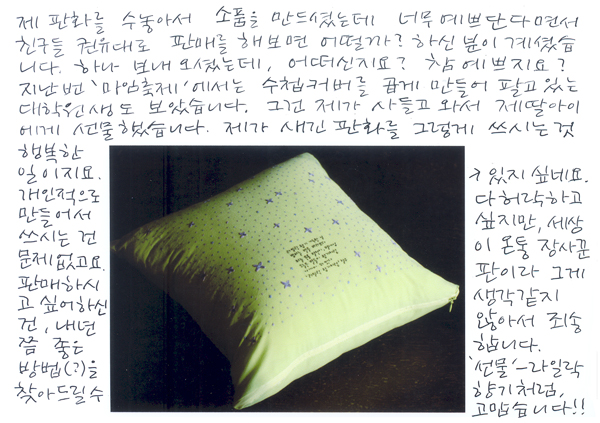 제 판화를 수놓아서 소품을 만드셨는데 너무 예쁘단다면서
친구들 권유대로 판매를 해보면 어떨까? 하신 분이 계셨습
니다. 하나 보내 오셨는데, 어떠신지요? 참 예쁘지요?
지난번 '마암축제'에서는 수첩커버를 곱게 만들어 팔고 있는
대학원생도 보았습니다. 그건 제가 사들고 와서 제딸아이
에게 선물 했습니다. 제가 새긴 판화를 그렇게 쓰시는 것
행복한
일이지요.
개인적으로
만들어서
쓰시는 건
문제없고요.
판매하시
고 싶어하신
건, 내년
쯤 좋은
방법(?)을
찾아드릴 수
있지 싶네요.
다 허락하고
싶지만, 세상
이 온통 장사꾼
판이라 그게
생각같지
않아서 죄송
합니다.
'선물'-라일락
향기처럼,
고맙습니다!!